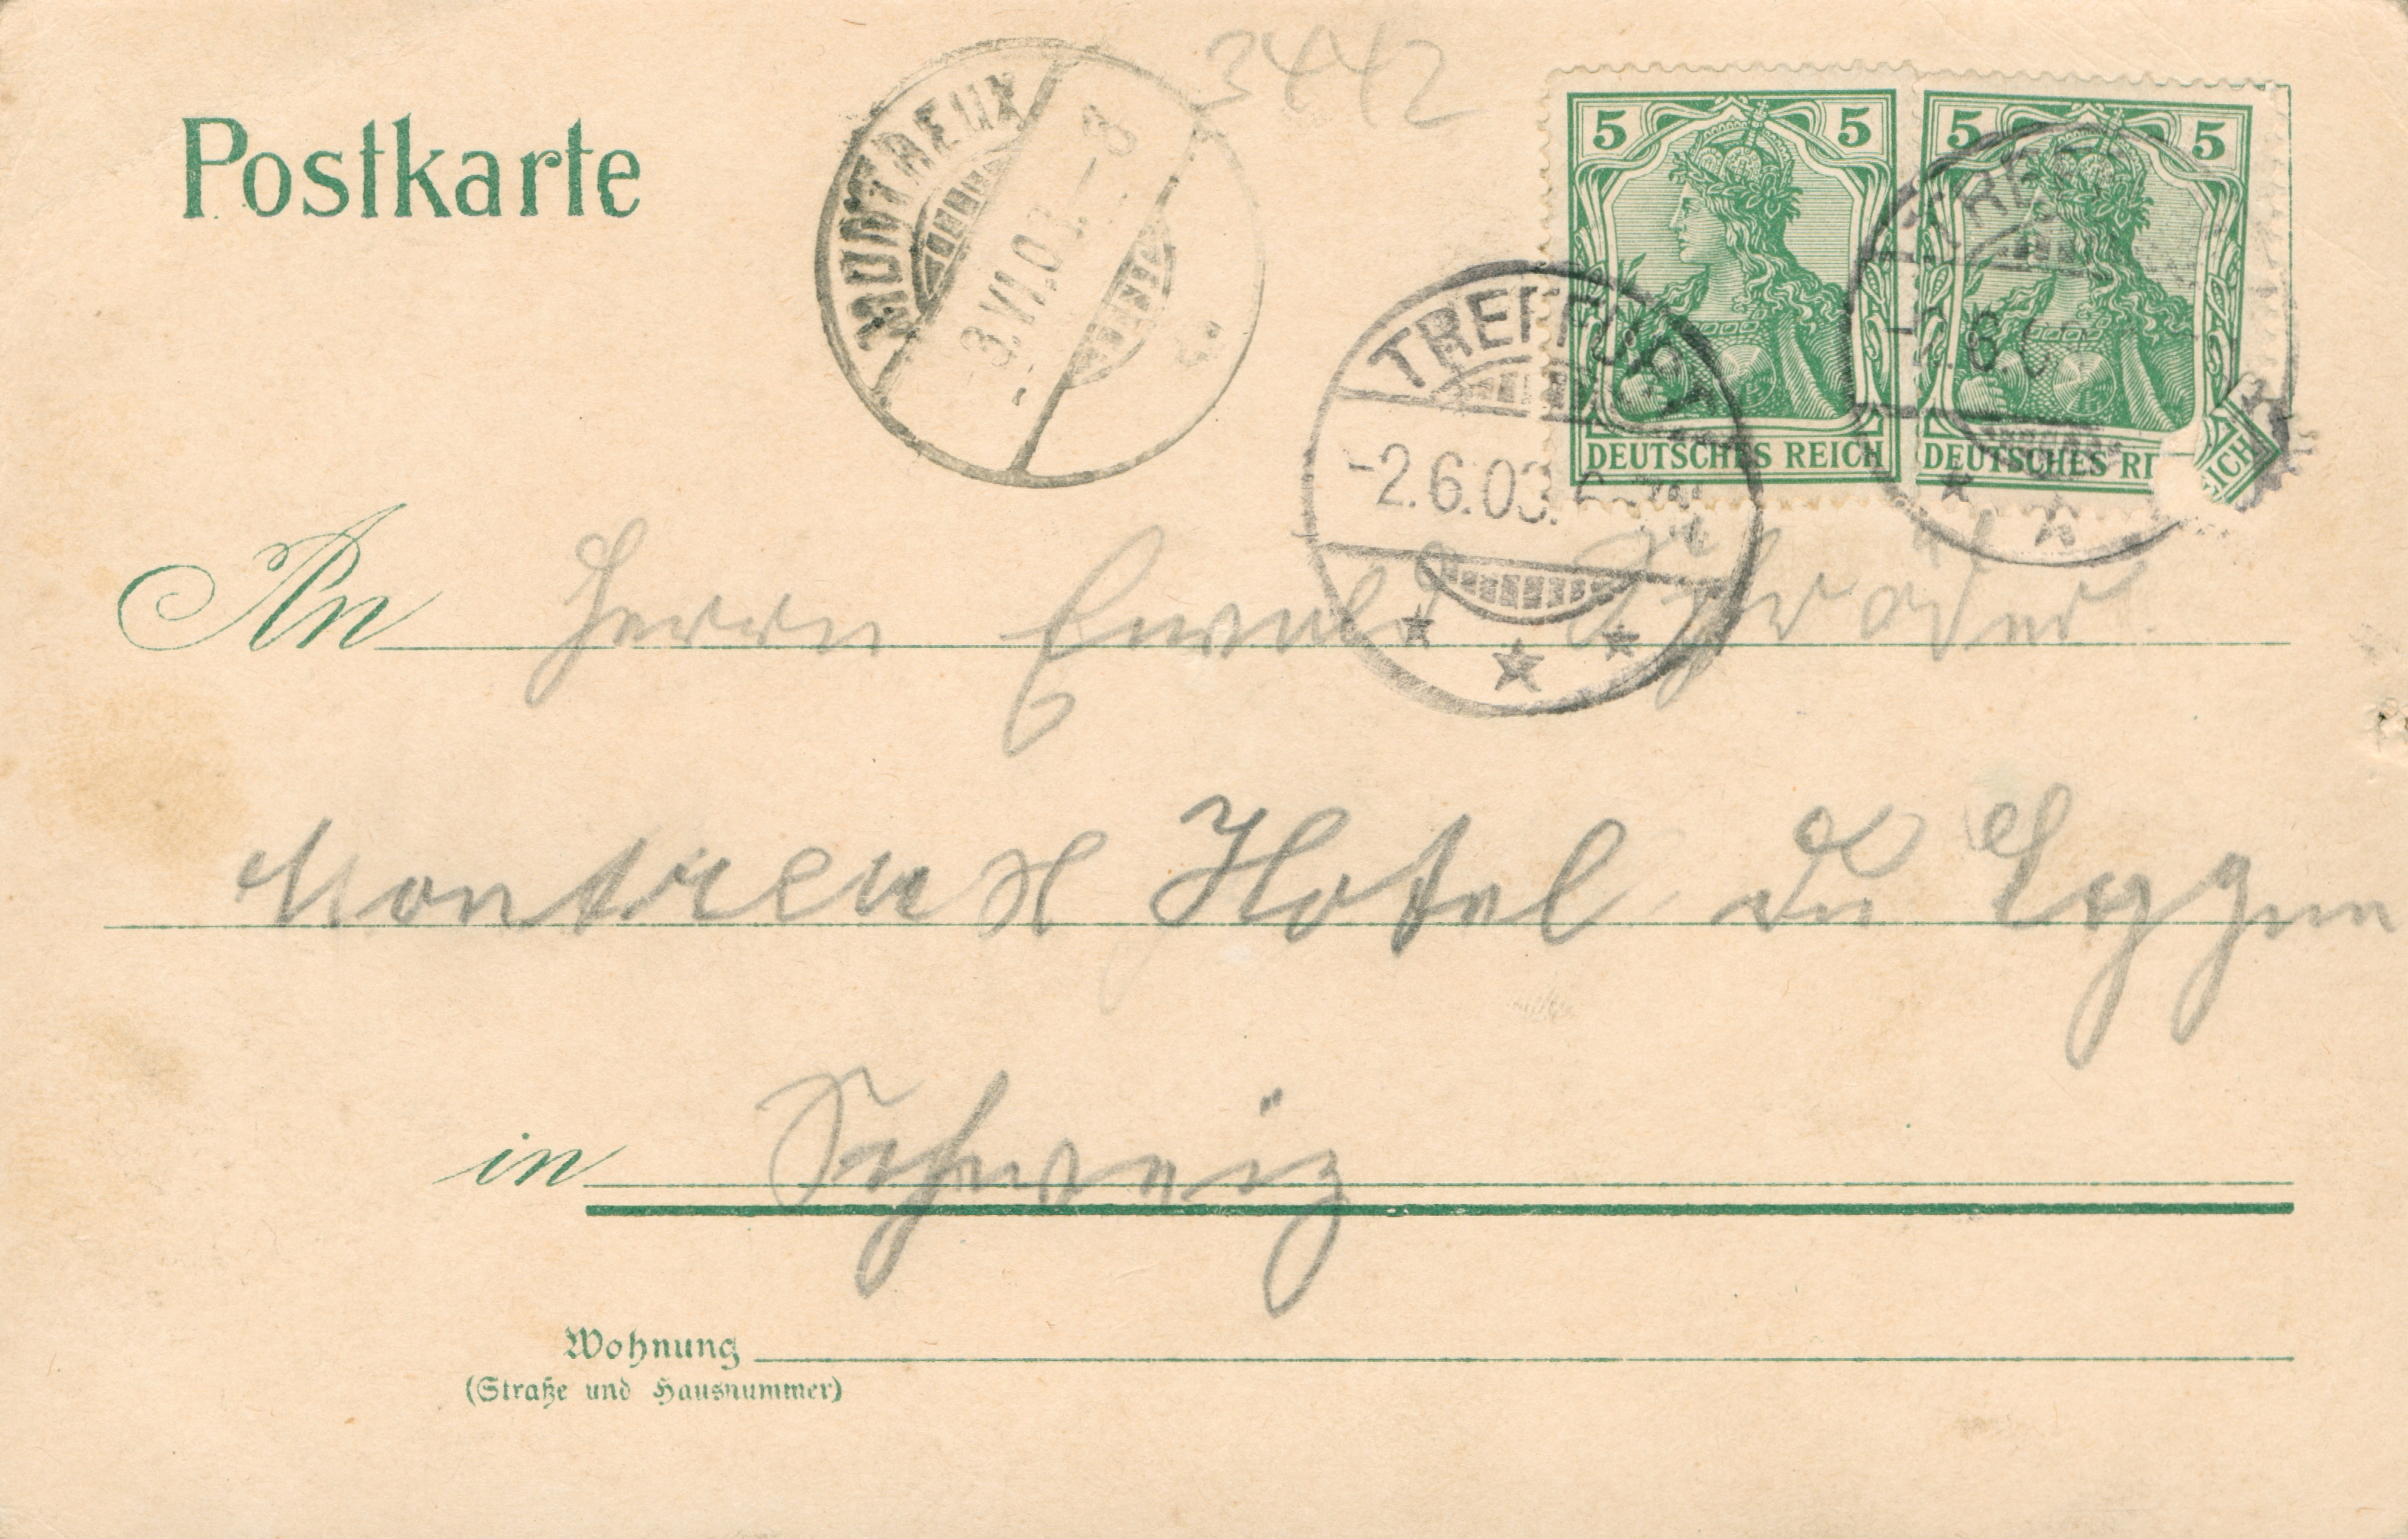 3442
Postkarte
MONTREUX
-3.VI.03.-8
5 5
DEUTSCHES REICH
5 5
DEUTSCHES REICH
TREFFURT
-2.6.03.
TREFFURT
2.6.0
An Herrn Ewald Schröder.
Montreux Hotel du
in Schweiz
Wohnung
(Straße und Hausnummer)